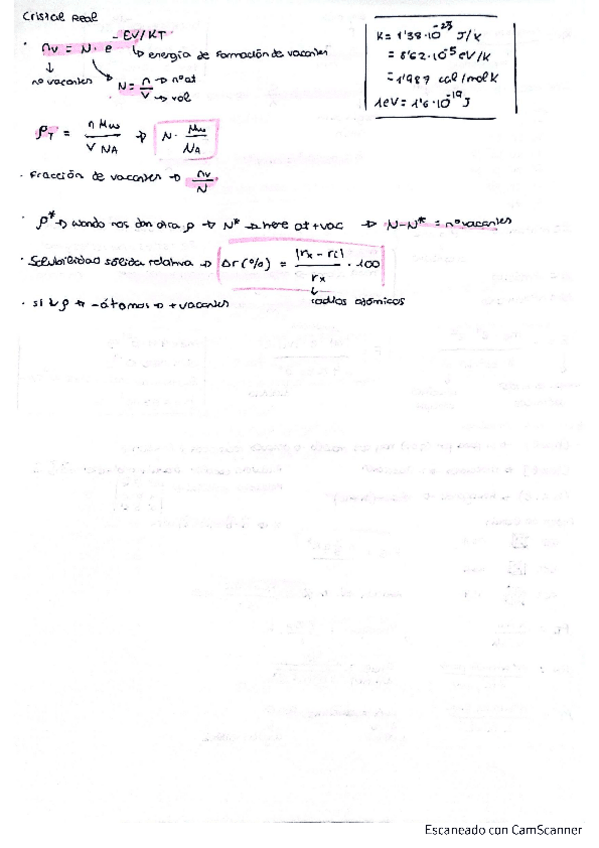 Cristal Real
· nv = N · e^-EV/KT
↳ energía de formación de vacantes
↓
nº vacantes
N = n/V → nº at
→ vol
K = 1'38·10^-23 J/K
= 8'62·10^-5 eV/K
= 1'987 cal/mol K
1eV = 1'6·10^-19 J
ρT = n Mw / V NA ⇒ N · Mw / NA
· Fracción de vacantes → nv/N
· ρ* → cuando nos dan otra ρ → N* → here at+vac → N-N* = nº vacantes
· Solubilidad sólida relativa → Δr(%) = |rx - rc| / rx · 100
↓
radios atómicos
· si ↓ρ → -átomos → +vacantes
Escaneado con CamScanner